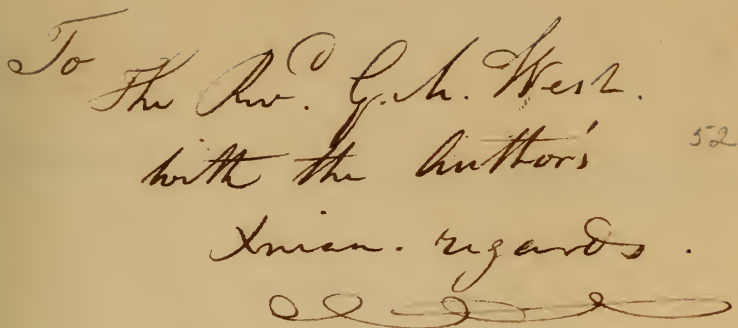 To
The Revd. G. M. West.
with the Author's
52
Xnian. regards.